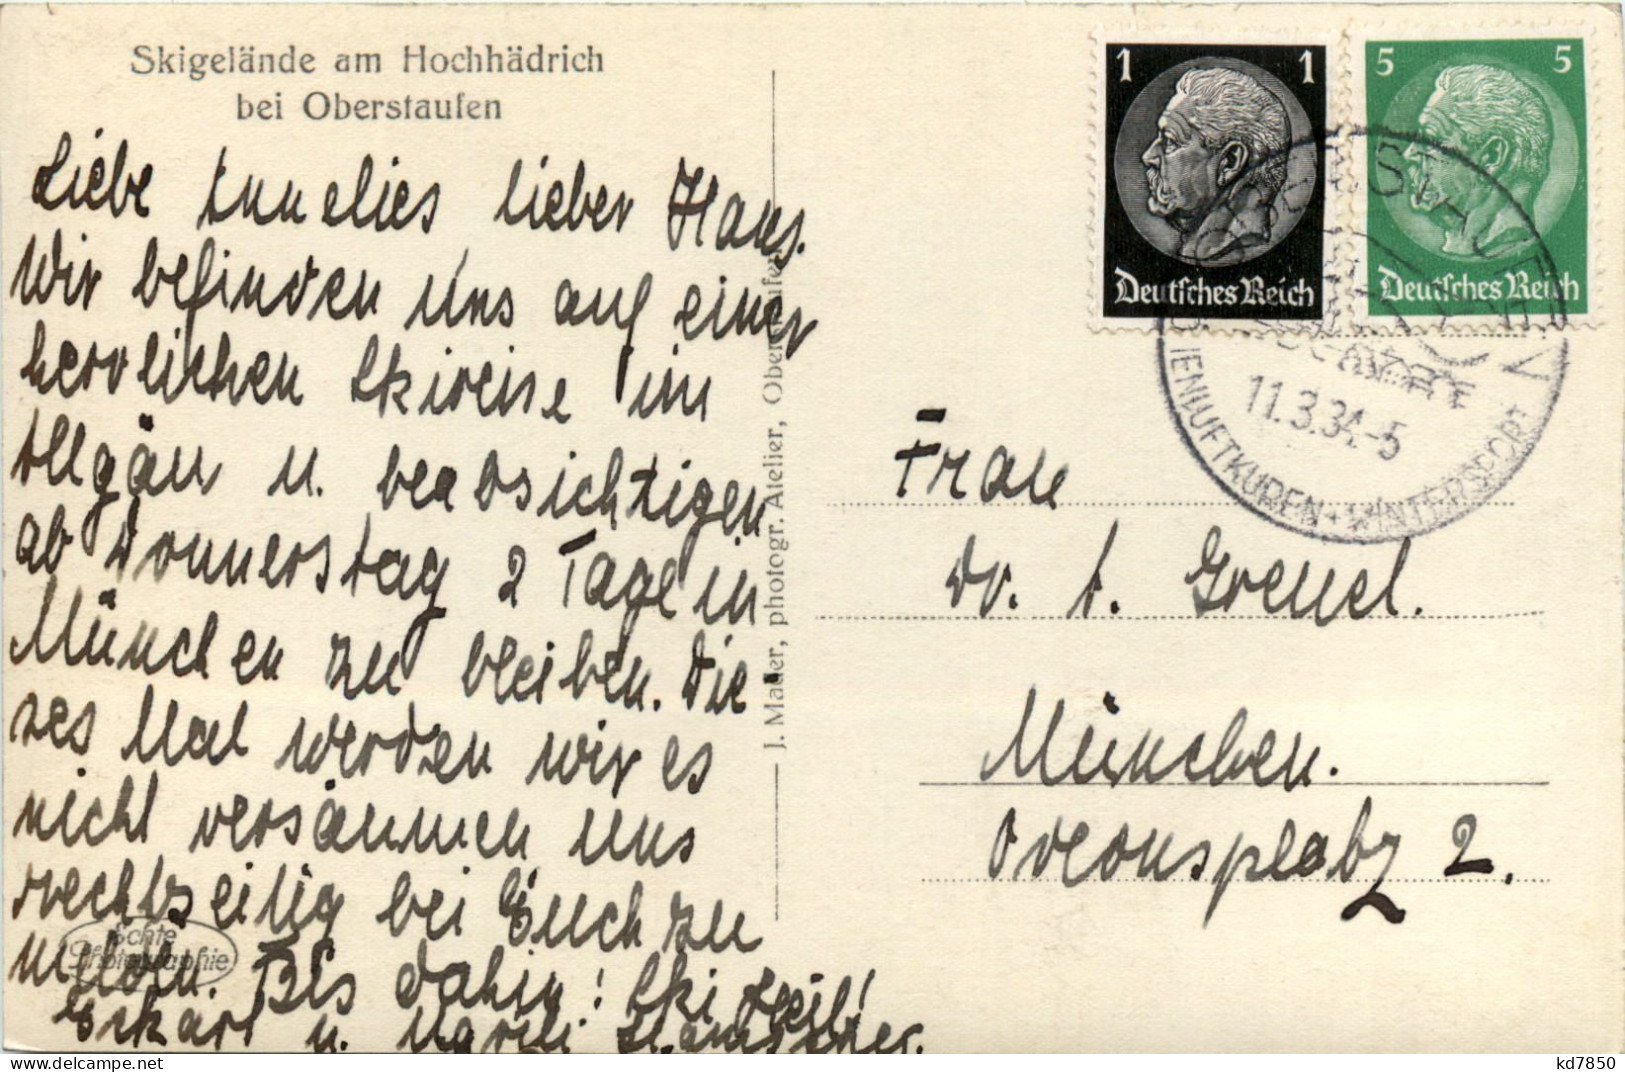 Skigelände am Hochhädrich
bei Oberstaufen
Liebe Annelies lieber Hans.
Wir befinden uns auf einer
herrlichen Skireise im
Allgäu u. beabsichtigen
ab Donnerstag 2 Tage in
München zu bleiben. Die
ses Mal werden wir es
nicht versäumen uns
rechtzeitig bei Euch zu
melden. Bis dahin! Ski Heil!
Eckart u.
J. Mader, photogr. Atelier, Oberstaufen
Echte
Photographie
1 1
Deutsches Reich
5 5
Deutsches Reich
OBERSTAUFEN
11.3.34.-5
HÖHENLUFTKUREN + WINTERSPORT
Frau
Dr. A. Greuel.
München.
Odeonsplatz 2.
delcampe.net
kd7850